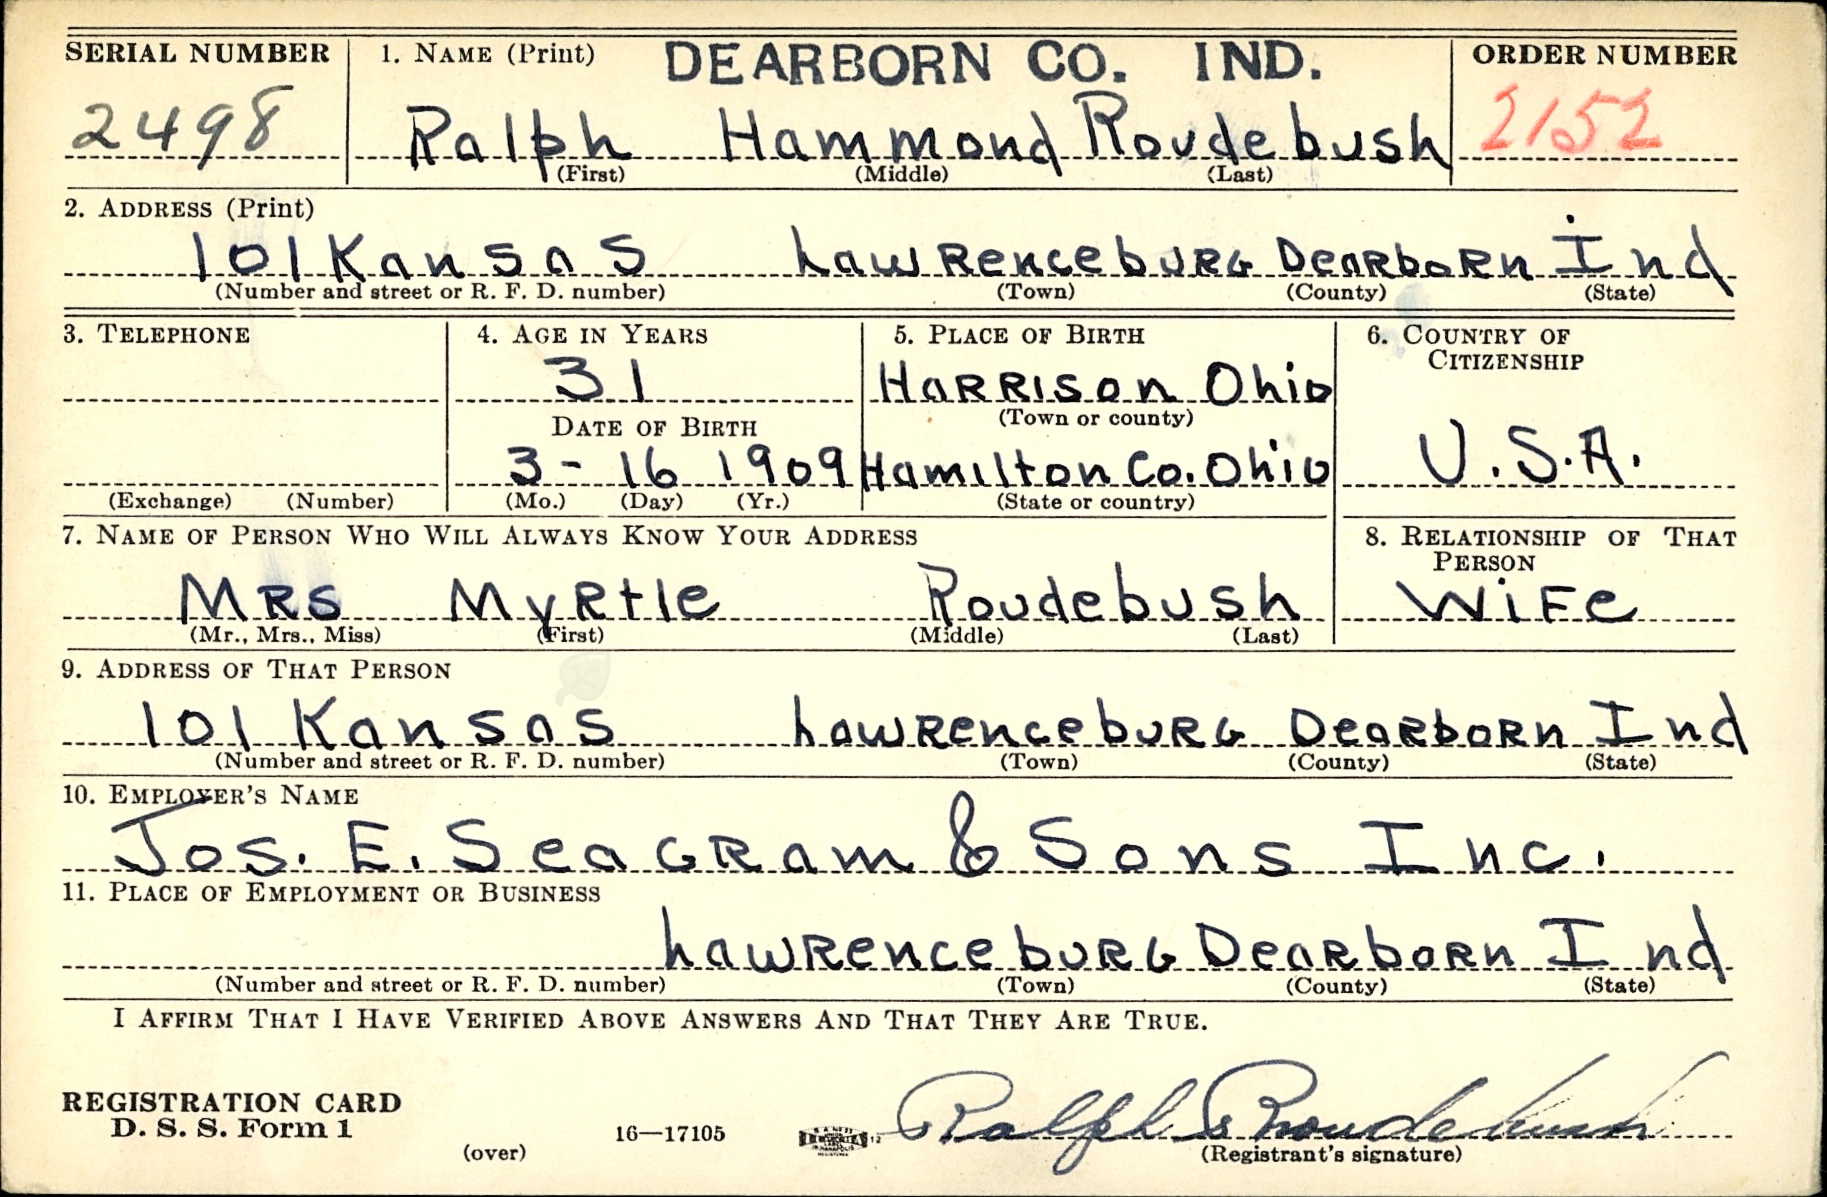 SERIAL NUMBER 1. NAME (Print) DEARBORN CO. IND. ORDER NUMBER
2498 Ralph Hammond Roudebush 2152
(First) (Middle) (Last)
2. ADDRESS (Print)
101 Kansas Lawrenceburg Dearborn Ind
(Number and street or R. F. D. number) (Town) (County) (State)
3. TELEPHONE 4. AGE IN YEARS 5. PLACE OF BIRTH 6. COUNTRY OF
CITIZENSHIP
31 Harrison Ohio
(Town or county)
DATE OF BIRTH
3-16 1909 Hamilton Co. Ohio U.S.A.
(Exchange) (Number) (Mo.) (Day) (Yr.) (State or country)
7. NAME OF PERSON WHO WILL ALWAYS KNOW YOUR ADDRESS 8. RELATIONSHIP OF THAT
PERSON
Mrs Myrtle Roudebush Wife
(Mr., Mrs., Miss) (First) (Middle) (Last)
9. ADDRESS OF THAT PERSON
101 Kansas Lawrenceburg Dearborn Ind
(Number and street or R. F. D. number) (Town) (County) (State)
10. EMPLOYER'S NAME
Jos. E. Seagram & Sons Inc.
11. PLACE OF EMPLOYMENT OR BUSINESS
Lawrenceburg Dearborn Ind
(Number and street or R. F. D. number) (Town) (County) (State)
I AFFIRM THAT I HAVE VERIFIED ABOVE ANSWERS AND THAT THEY ARE TRUE.
REGISTRATION CARD
D. S. S. Form 1 16—17105 12 Ralph Roudebush
(over) (Registrant's signature)